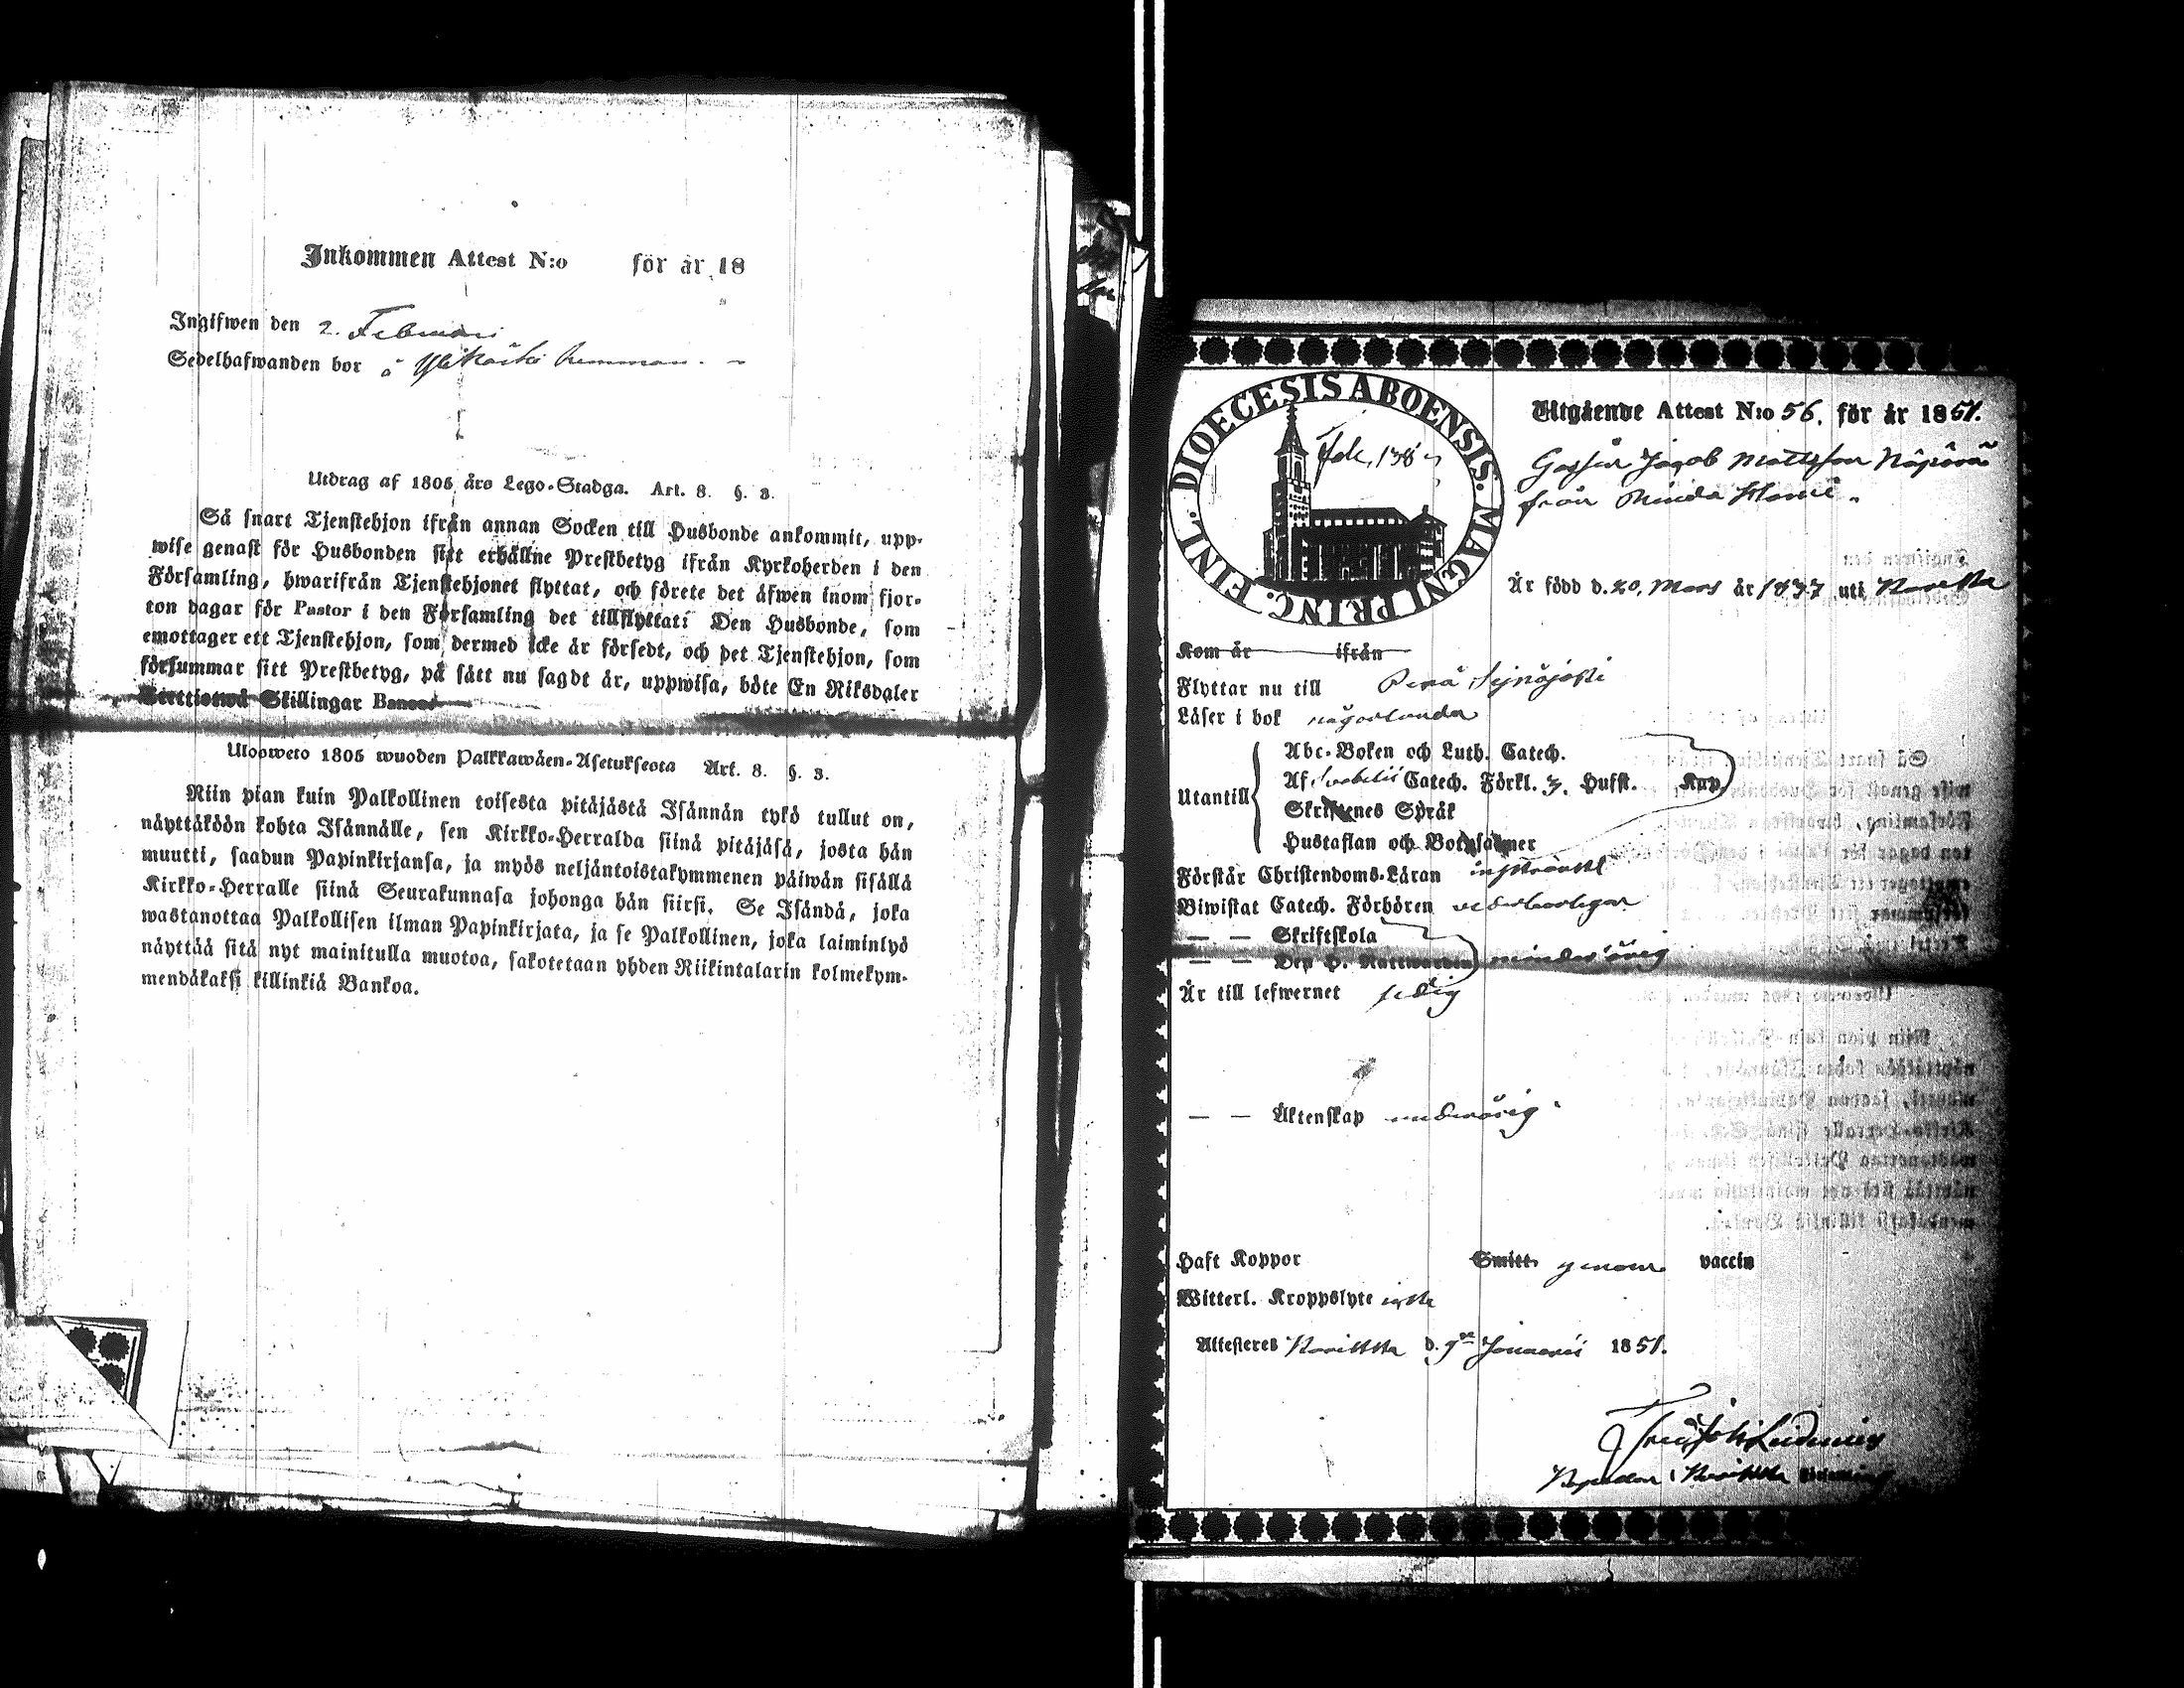 Inkommen Attest N:o för år 18
Ingifwen den 2. Februari
Sedelhafwanden bor å
Utdrag af 1805 års Lego-Stadga. Art. 8. §. 3.
Så snart Tjenstehjon ifrån annan Socken till Husbonde ankommit, upp-
wise genast för Husbonden sitt erhållne Prestbetyg ifrån Kyrkoherden i den
Församling, hwarifrån Tjenstehjonet flyttat, och förete det äfwen inom fjor-
ton dagar för Pastor i den Församling det tillflyttati Den Husbonde, som
emottager ett Tjenstehjon, som dermed icke är försedt, och det Tjenstehjon, som
försummar sitt Prestbetyg, på sätt nu sagdt är, uppwisa, böte En Riksdaler
Skillingar Banco
Ulosweto 1805 wuoden Palkkawäen-Asetuksesta Art. 8. §. 3.
Niin pian kuin Palkollinen toisesta pitäjästä Isännän tykö tullut on,
näyttäköön kohta Isännälle, sen Kirkko-Herralda siinä pitäjäsä, josta hän
muutti, saadun Papinkirjansa, ja myös neljäntoistakymmenen päiwän sisällä
Kirkko-Herralle siinä Seurakunnasa johonga hän siirsi. Se Isändä, joka
wastanottaa Palkollisen ilman Papinkirjata, ja se Palkollinen, joka laiminlyö
näyttää sitä nyt mainitulla muotoa, sakotetaan yhden Riikintalarin kolmekym-
mendäkaksi killinkiä Bankoa.
DIOECESIS ABOENSIS. MAGNI PRINC. FINL.
Utgående Attest N:o 56. för år 1851.
Gossen Jacob Mattsson
från
Är född d. 20. Mars år 1837 uti
Kom år ifrån
Flyttar nu till Perä Seinäjoki
Läser i bok någorlunda
Utantill
Abc-Boken och Luth. Catech.
Af Svebelii Catech. Förkl. 3. Hufst. Kap
Skriftenes Språk
Hustaflan och Botpsalmer
Förstår Christendoms-Läran
Biwistat Catech. Förhören vederborligen
— — Skriftskola
— — Den H. Nattwarden minderårig
Är till lefwernet ledig
— — Äktenskap underårig
Haft Koppor Smitt genom vaccin
Witterl. Kroppslyte icke
Attesteres d. 9de Januarii 1851.